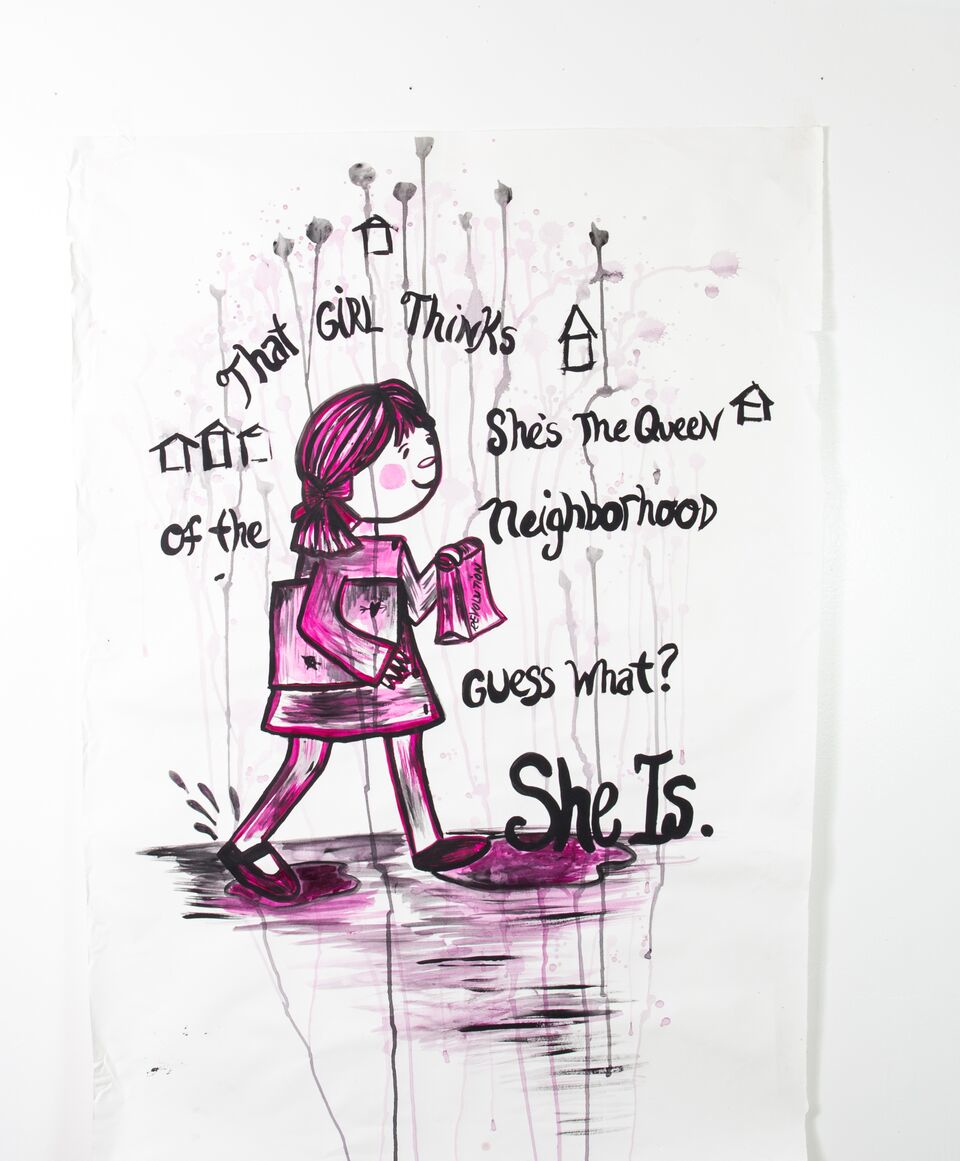 That GiRL Thinks
She's The Queen
of the Neighborhood
REVOLUTION
Guess What?
She Is.